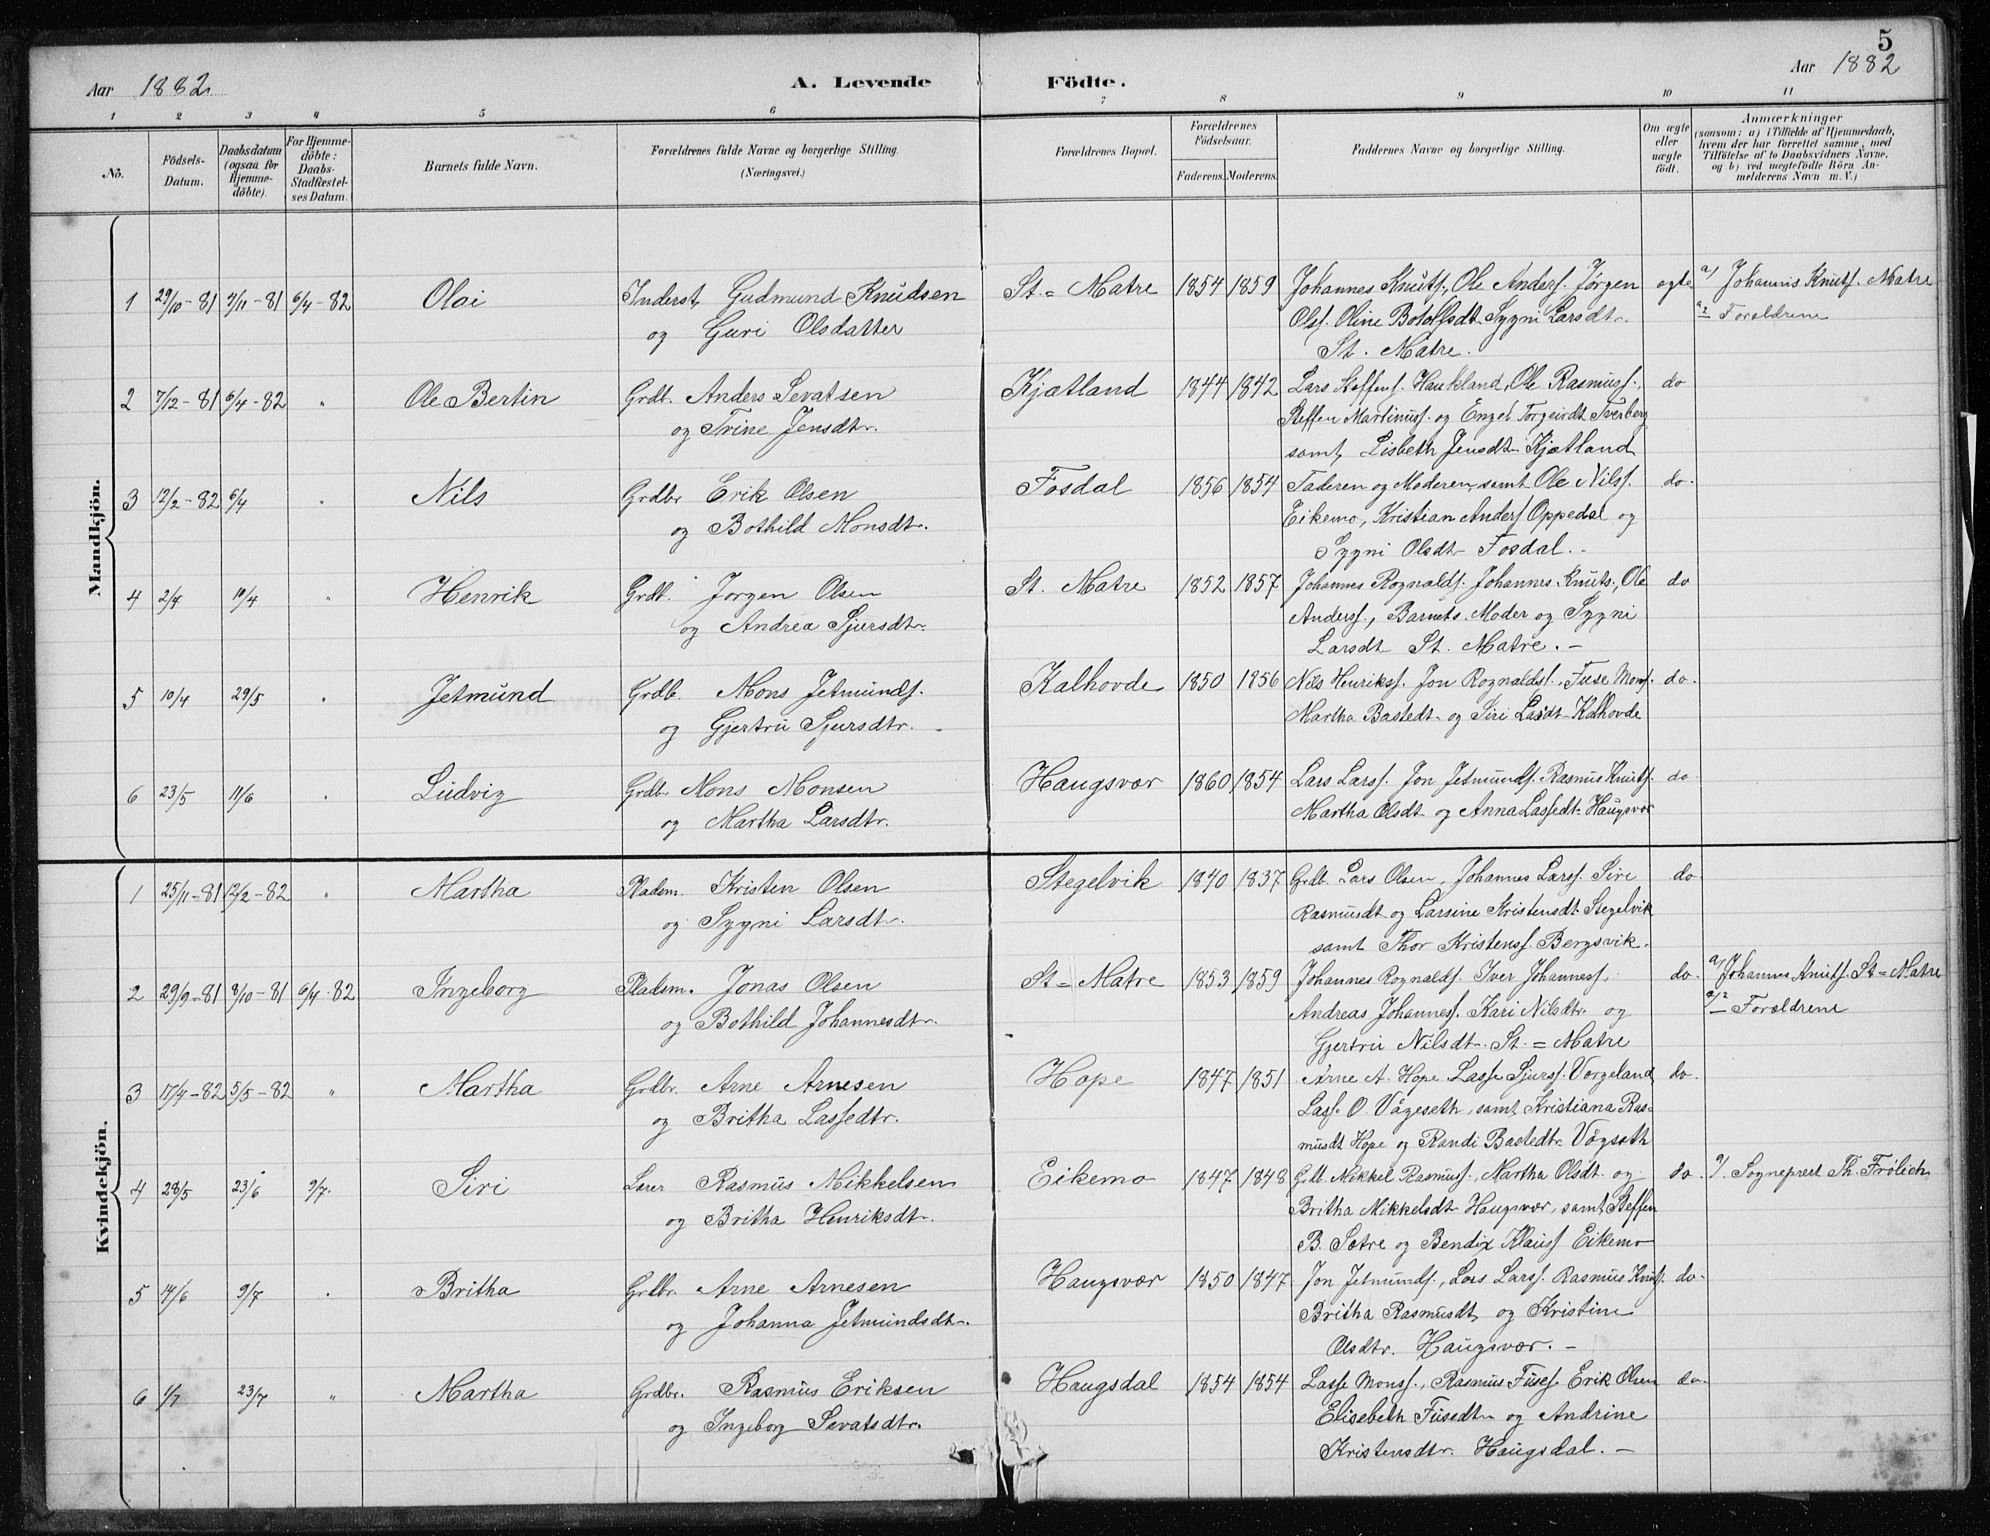 5
Aar 1882. A. Levende Födte. Aar 1882
1 2 3 4 5 6 7 8 9 10 11
No. Födsels-Datum. Daabsdatum (ogsaa for Hjemmedöbte). For Hjemmedöbte: Daabs-Stadfæstelses Datum. Barnets fulde Navn. Forældrenes fulde Navne og borgerlige Stilling. (Næringsvei.) Forældrenes Bopæl. Forældrenes Födselsaar. Faderens. Moderens. Faddernes Navne og borgerlige Stilling. Om ægte eller uægte födt. Anmærkninger (saasom: a) i Tilfælde af Hjemmedaab, hvem der har forrettet samme, med Tilföielse af to Daabsvidners Navne, og b) ved uægtefödte Börn Anmelderens Navn m. V.)
Mandkjön.
1 29/10-81 7/11-81 6/4-82 Olai Inderst, Gudmund Knudsen St.=Matre 1854 1859 Johannes Knuts., Ole Anders. Jørgen ægte a/ Johannis Knuts. Matre
og Guri Olsdatter Ols. Oline Botolfsdt. Sygni Larsdtr. a2 Forældrene
St. Matre.
2 7/12-81 6/4-82 " Ole Bertin Grdb. Anders Sevatsen Kjætland 1844 1842 Lars Steffens. Haukland, Ole Rasmuss., do
og Trine Jensdtr. Steffen Martinuss. og Engel Torgeirdt Tverberg
samt Lisbeth Jensdt. Kjætland
3 12/2-82 6/4 " Nils Grdbr Erik Olsen Fosdal 1856 1854 Faderen og Moderen, samt Ole Nilss. do.
og Bothild Monsdt. Eikemo, Kristian Anders Oppedal og
Sygni Olsdt. Fosdal.
4 2/4 10/4 " Henrik Grdb. Jørgen Olsen St. Matre 1852 1857 Johannes Rognalds. Johannes Knuts., Ole do
og Andrea Sjursdtr. Anderss., Barnets Moder og Sygni
Larsdt St. Matre. -
5 10/4 29/5 " Jetmund Grdb. Mons Jetmunds. Kalhovde 1850 1856 Nils Henrikss. Jon Rognaldss., Fuse Mons. do.
og Gjertru Sjursdtr. Martha Bastedt. og Siri Lasdt. Kalhovde
6 23/5 11/6 " Ludvig Grdb. Mons Monsen Haugsvær 1860 1854 Lars Larss. Jon Jetmunds. Rasmus Knuts. do
og Martha Larsdtr. Martha Olsdt og Anna Lassedt. Haugsvær
Kvindekjön.
1 25/11-81 12/2-82 " Martha Pladsm. Kristen Olsen Stegelvik 1840 1837 Grdb. Lars Olsen, Johannes Larss. Siri do
og Sygni Larsdtr. Rasmusdt og Larsine Kristensdt. Stegelvik
samt Thor Kristenss. Bergsvik.
2 29/9-81 8/10-81 6/4-82 Ingeborg Pladsm. Jonas Olsen St=Matre 1853 1859 Johannes Rognalds. Iver Johanness. do. a/ Johannes Knuts. St=Matre
og Bothild Johannesdtr. Andreas Johanness. Kari Nilsdtr og a/2 Forældrene
Gjertru Nilsdt. St.=Matre
3 17/4-82 5/5-82 " Martha Grdbr. Arne Arnesen Hope 1847 1851 Arne A. Hope Lasse Sjurss. Vorgeland do.
og Britha Lassedtr. Lasse O. Vågeseth, samt Kristiana Ras-
musdt Hope og Randi Bastedtr. Vågseth
4 28/5 23/6 9/7. Siri Lærer Rasmus Mikkelsen Eikemo 1847 1848 Grdb. Mikkel Rasmuss., Martha Olsdt. og do. a/. Sogneprest Th. Frølich
og Britha Henriksdt. Britha Mikkelsdt Haugsvær, samt Steffen
B. Sætre og Bendix Klauss. Eikemo
5 14/6 9/7 " Britha Grdbr. Arne Arnesen Haugsvær 1850 1847 Jon Jetmunds., Lars Larss. Rasmus Knuts. do.
og Johanna Jetmundsdtr. Britha Rasmusdt, og Kristine
Olsdtr. Haugsvær. -
6 1/7 23/7 " Martha Grdbr. Rasmus Eriksen Haugsdal 1854 1854 Lasse Monss., Rasmus Fuses. Erik Olsen do.
og Ingeborg Sevatsdtr. Elisebeth Fusedtr og Andrine
Kristensdtr. Haugsdal. -